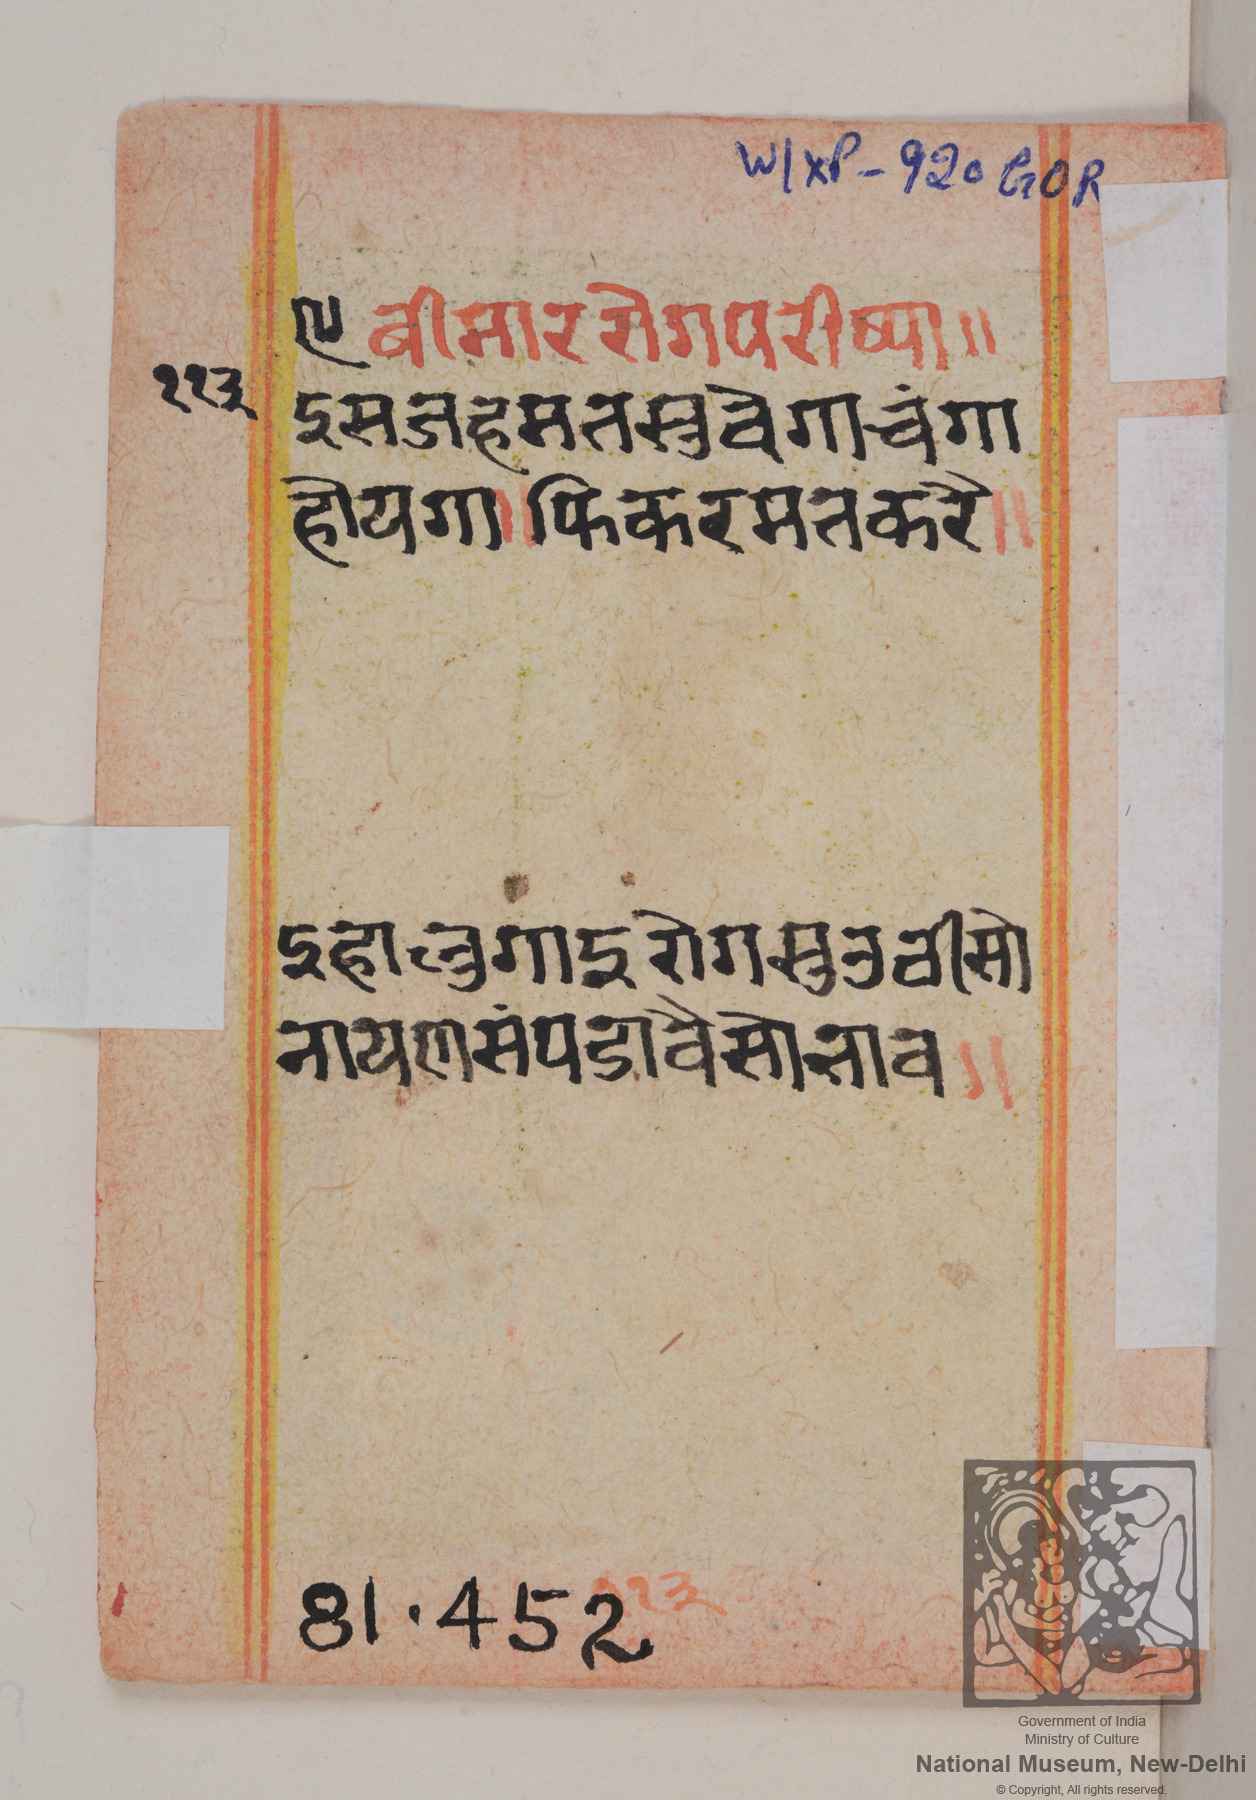 W/XP-920 GOR
बीमार रोग परीष्या॥
११३
इसजहमतसुवेगाचंगा
होयगा॥फिकरमतकरे॥
इहाचुगाइरोगसुनुबीसो
नायणसंपडावेसोनाव॥
81.452
११३
Government of India
Ministry of Culture
National Museum, New-Delhi
© Copyright, All rights reserved.